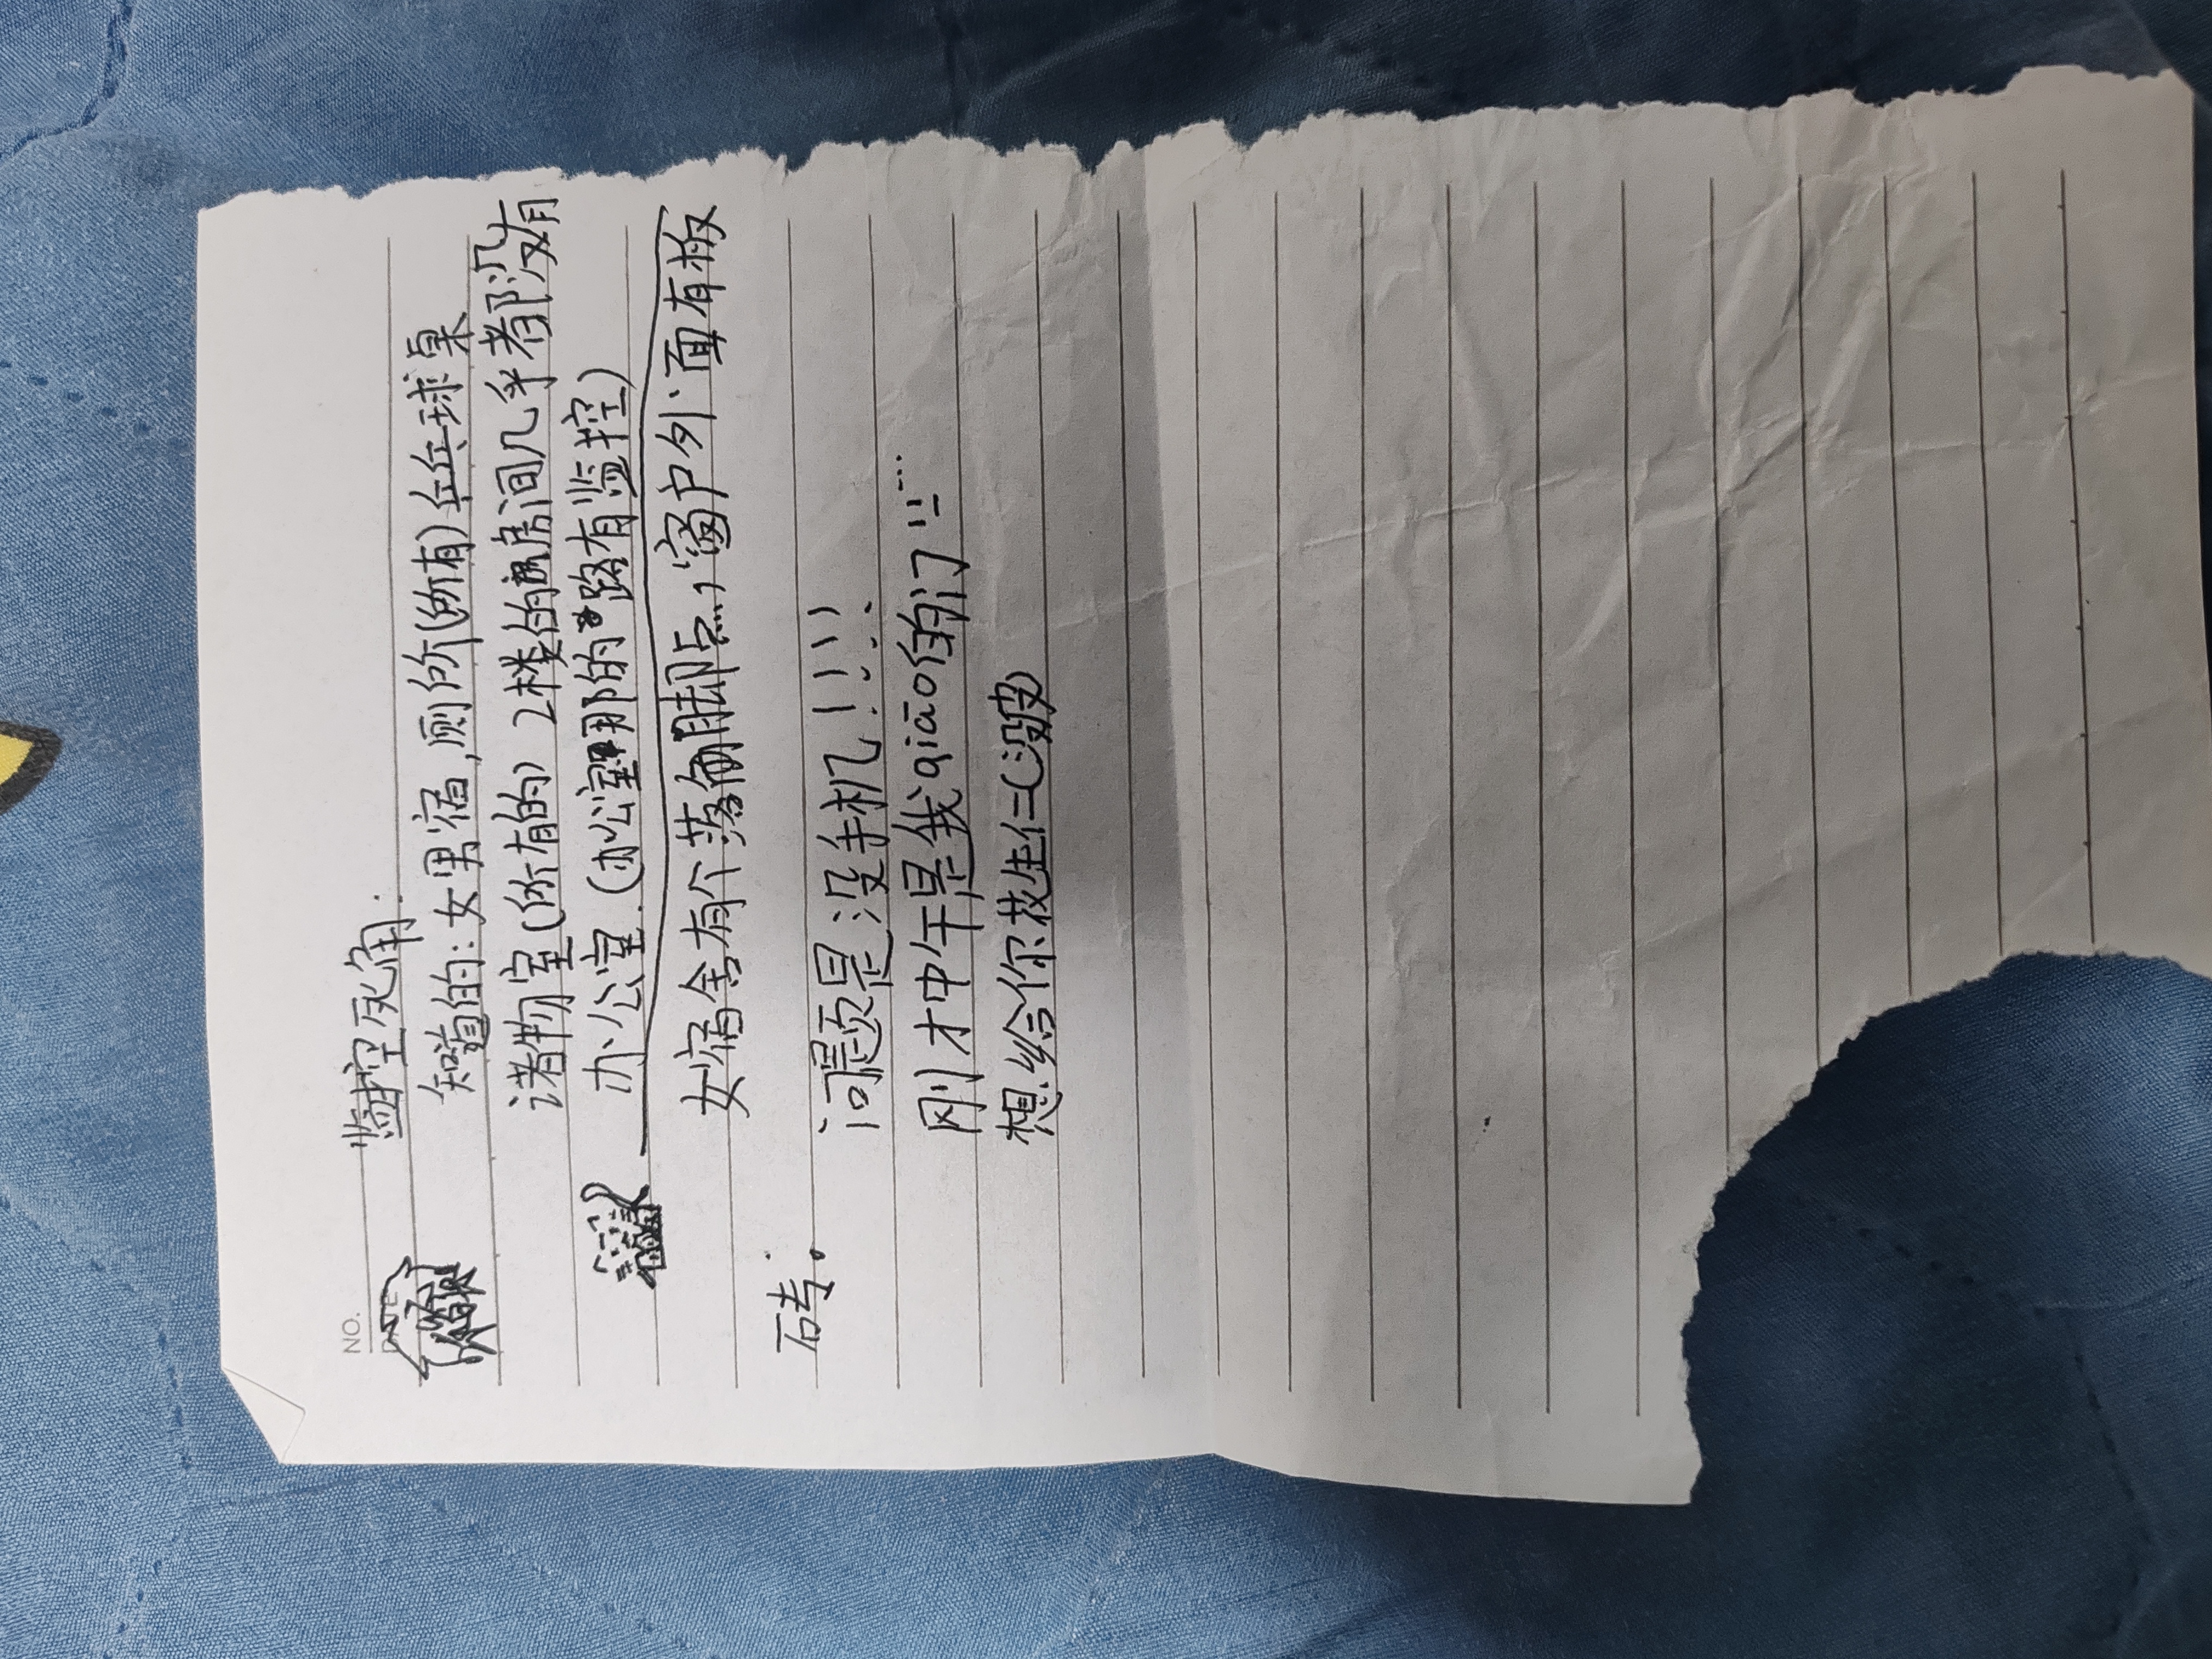 NO.
监控死角:
知道的:女男宿,厕所(所有)乒乓球桌
诸物室(所有的) 2楼的房间几乎都没有
办公室.(办公室那的路有监控)
女宿舍有个落脚点,窗户外面有板
砖。
问题是没手机!!!!
刚才中午是我qiāo的门!!……
想给你花生仁(没皮)